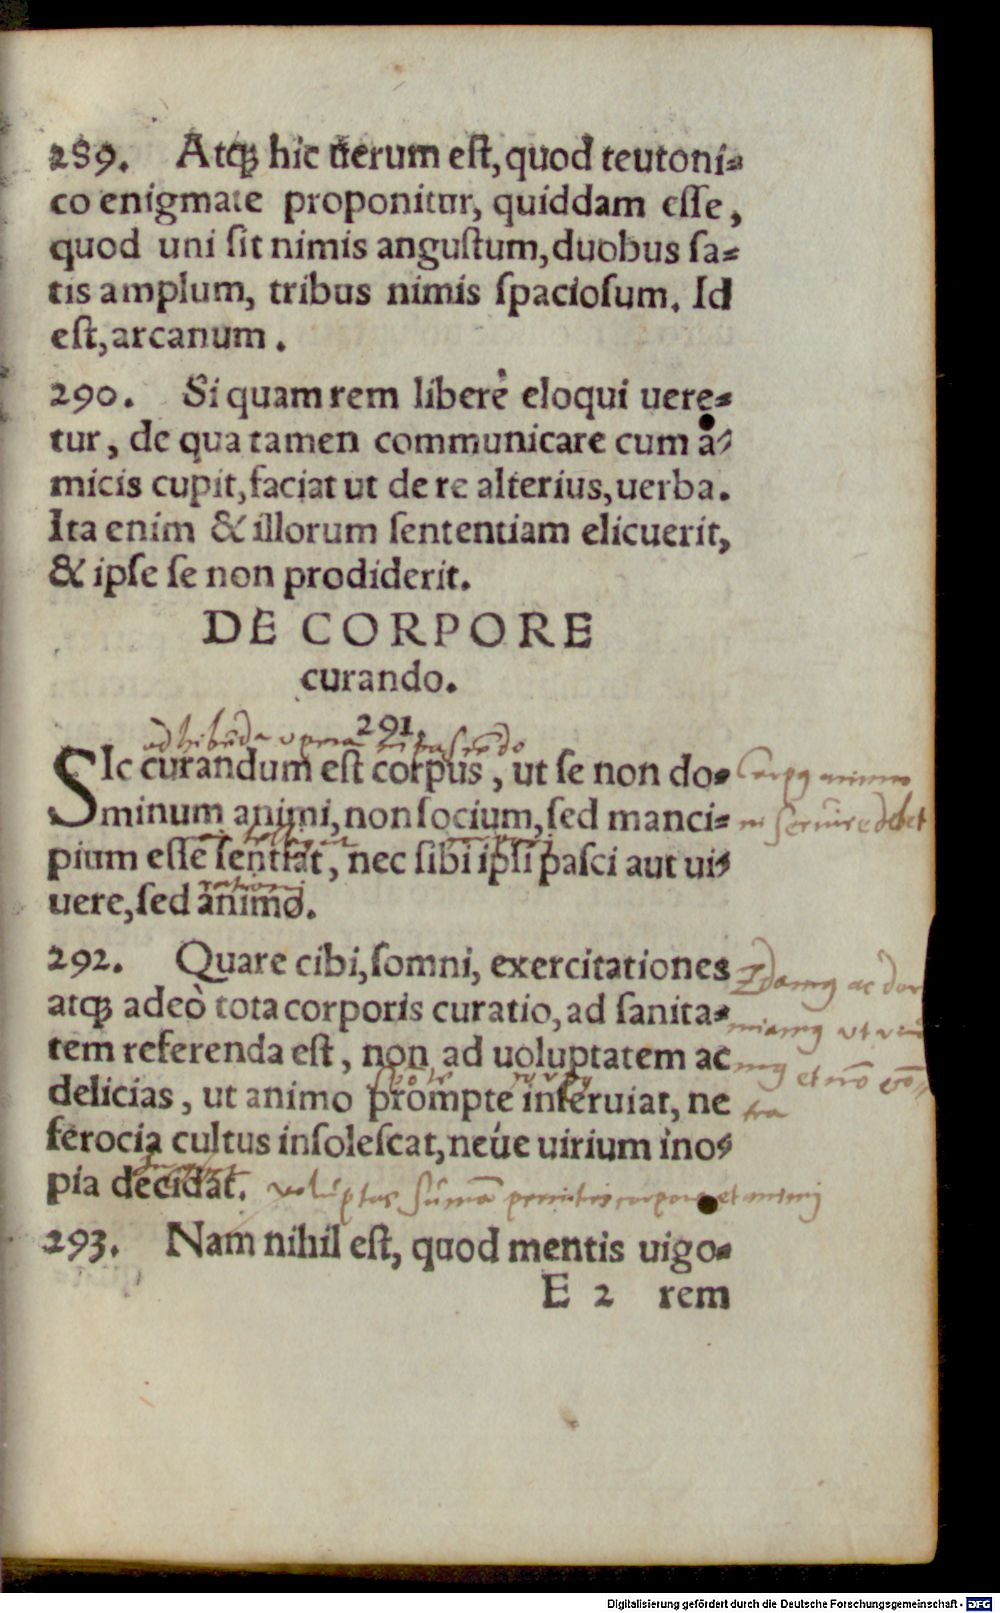 289. Atqꝫ hic uerum est, quod teutoni⸗
co enigmate proponitur, quiddam esse,
quod uni sit nimis angustum, duobus sa⸗
tis amplum, tribus nimis spaciosum. Id
est, arcanum.
290. Si quam rem liberè eloqui uere⸗
tur, de qua tamen communicare cum a⸗
micis cupit, faciat ut de re alterius, uerba.
Ita enim & illorum sententiam elicuerit,
& ipse se non prodiderit.
DE CORPORE
curando.
291.
SIc curandum est corpus, ut se non do⸗
Corpꝯ animo
minum animi, non socium, sed manci⸗
seruire debet
pium esse sentiat, nec sibi ipsi pasci aut ui⸗
rationi
uere, sed animo.
292. Quare cibi, somni, exercitationes
ac dor
atqꝫ adeò tota corporis curatio, ad sanita⸗
miamꝯ ut
tem referenda est, non ad uoluptatem ac
et nō
delicias, ut animo prompte inseruiat, ne
tra
ferocia cultus insolescat, neúe uirium ino⸗
pia decidat.
voluptas
293. Nam nihil est, quod mentis uigo⸗
E 2 rem
Digitalisierung gefördert durch die Deutsche Forschungsgemeinschaft - DFG